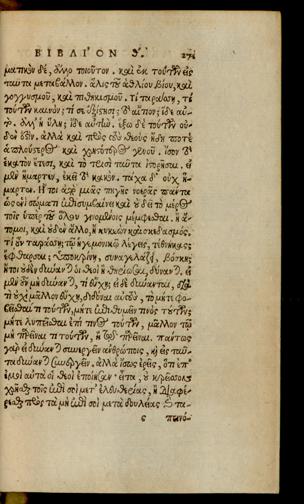 ΒΙΒΛΙΟΝ Θ. 271
ματικὸν δέ, ἄλλο τοιοῦτον. καὶ ἐκ τούτων εἰς
ταῦτα μεταβάλλον. ἅλις τοῦ ἀθλίου βίου, καὶ
γογγυσμοῦ, καὶ πιθηκισμοῦ. τί ταράσσῃ, τί
τούτων καινὸν; τί σε ἐξίστησι; τὸ αἴτιον; ἴδε αὐ-
τό. ἀλλ' ἡ ὕλη; ἴδε αὐτήν. ἔξω δὲ τούτων οὐ-
δέν ἐστιν. ἀλλὰ καὶ πρὸς τοὺς θεοὺς ἤδη ποτὲ
ἁπλούστερος καὶ χρηστότερος γενοῦ. ἴσον τὸ
ἑκατὸν ἔτεσι, καὶ τὸ τρισὶ ταῦτα ἱστορῆσαι. εἰ
μὲν ἥμαρτεν, ἐκεῖ τὸ κακόν. τάχα δ' οὐχ ἥ-
μαρτεν. Ἤτοι ἀπὸ μιᾶς πηγῆς νοερᾶς πάντα
ὡς ἑνὶ σώματι ἐπισυμβαίνει καὶ οὐ δεῖ τὸ μέρος
τοῖς ὑπὲρ τοῦ ὅλου γινομένοις μέμφεσθαι. ἢ ἄ-
τομοι, καὶ οὐδὲν ἄλλο, ἢ κυκεὼν καὶ σκεδασμός.
τί οὖν ταράσσῃ; τῷ ἡγεμονικῷ λέγεις, τέθνηκας;
ἔφθαρσαι; ὑποκρίνῃ, συναγελάζῃ, βόσκῃ;
ἤτοι οὐδὲν δύνανται οἱ θεοὶ ἢ δύνανται. εἰ
μὲν οὖν μὴ δύνανται, τί εὔχῃ; εἰ δὲ δύνανται, διὰ
τί οὐχὶ μᾶλλον εὔχῃ, διδόναι αὐτοὺς, τὸ μήτε φο-
βεῖσθαί τι τούτων, μήτε ἐπιθυμεῖν τινὸς τούτων;
μήτε λυπεῖσθαι ἐπί τινι τούτων, μᾶλλον τὸ
μὴ παρεῖναί τι τούτων, ἢ τὸ παρεῖναι. πάντως
γὰρ εἰ δύνανται συνεργεῖν ἀνθρώποις, καὶ εἰς ταῦ-
τα δύνανται συνεργεῖν. ἀλλὰ ἴσως ἐρεῖς, ὅτι ἐπ'
ἐμοὶ αὐτὰ οἱ θεοὶ ἐποίησαν. εἶτα, οὐ κρεῖσσον
χρῆσθαι τοῖς ἐπὶ σοὶ μετ' ἐλευθερίας, ἢ διαφέ-
ρεσθαι πρὸς τὰ μὴ ἐπὶ σοὶ μετὰ δουλείας